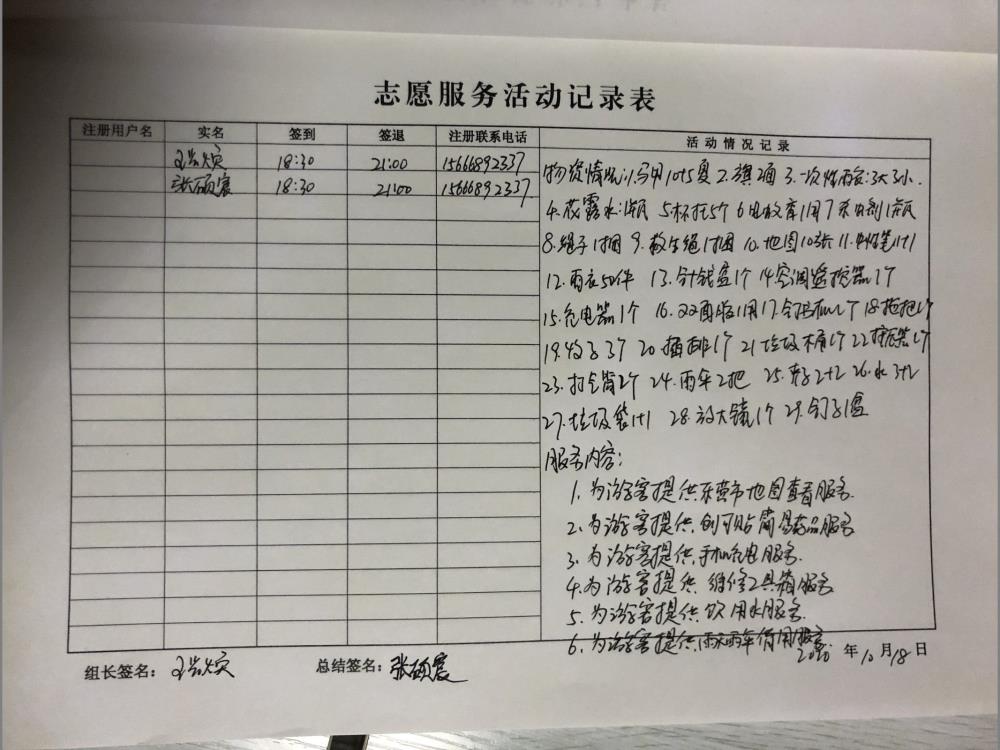 志愿服务活动记录表
注册用户名 实名 签到 签退 注册联系电话 活动情况记录
18:30 21:00 15666892337
张硕宸 18:30 21:00 15666892337
物资情况:1.马甲10+5夏 2.旗2桶 3.一次性雨衣:3大3小.
4.花露水:1瓶 5杯托5个
8.绳子1捆 9.救生绳1捆 10.地图10张 11.
12.雨衣50件 13.针线盒1个 14.空调遥控器1个
15.充电器1个 16. 17.订书机2个 18.拖把1个
19. 3个 20.插排1个 21垃圾桶1个 22
23.打气筒2个 24.雨伞2把 25. 2+2 26.水3+2
27.垃圾袋1+1 28.放大镜1个 29.钉子1盒
服务内容:
1.为游客提供东营市地图查看服务.
2.为游客提供创可贴简易药品服务
3.为游客提供手机充电服务.
4.为游客提供维修工具箱服务
5.为游客提供饮用水服务.
6.为游客提供雨衣雨伞借用服务.
组长签名: 总结签名:张硕宸 2020年10月18日